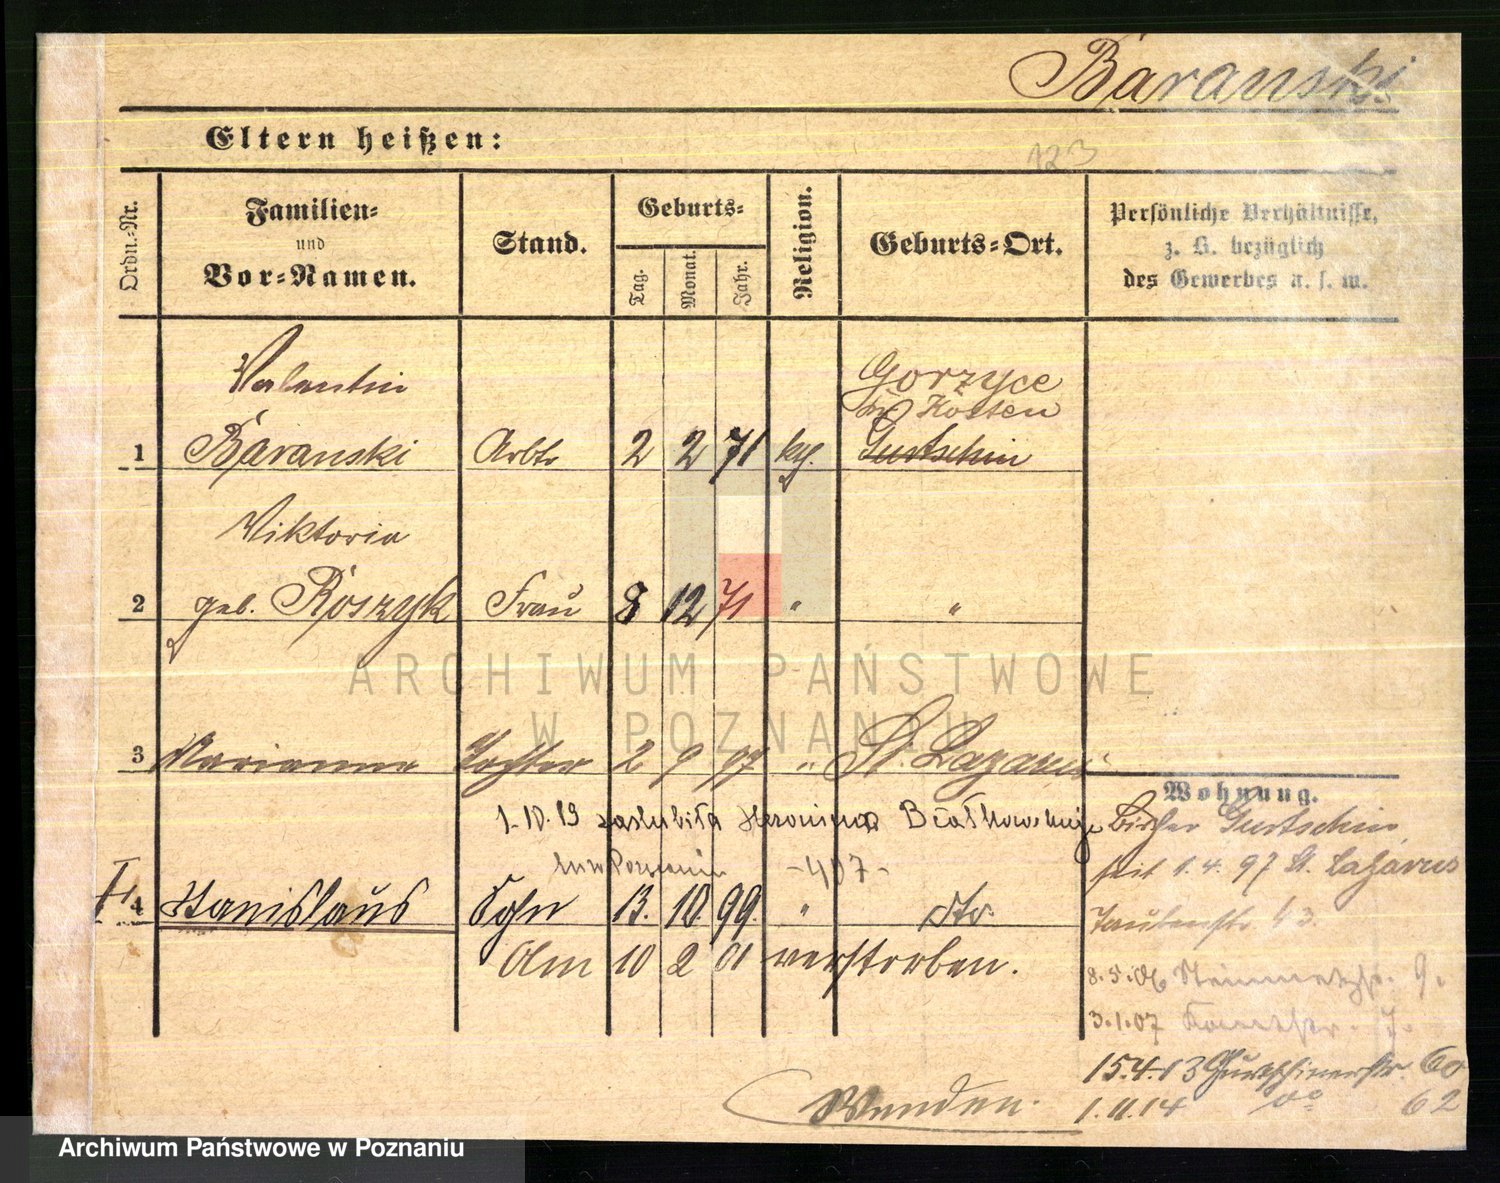 Baranski
Eltern heißen:
123
Ordn.-Nr.
Familien-
und
Vor-Namen.
Stand.
Geburts-
Tag.
Monat.
Jahr.
Religion.
Geburts-Ort.
Persönliche Verhältnisse,
z. B. bezüglich
des Gewerbes u. s. w.
Valentin
Gorzyce
Kosten
1 Baranski Arbtr 2 2 71 kath. Gurtschin
Viktoria
2 geb. Roszyk Frau 8 12 71 " "
ARCHIWUM PAŃSTWOWE
W POZNANIU
3 Marianna Tochter 2 9 97 " St. Lazarus
Wohnung.
1.10.19 zaślubiła Hieronima Białkowskiego
Bisher Gurtschin
-407-
seit 1.4.97 St. Lazarus
4 Stanislaus Sohn 13. 10. 99. " dto.
13.
Am 10 2 01 verstorben.
8.5.06 9.
3.1.07 7.
15.4.13 Gurtschinerstr. 60
Wenden.
1.11.14 do 62
Archiwum Państwowe w Poznaniu